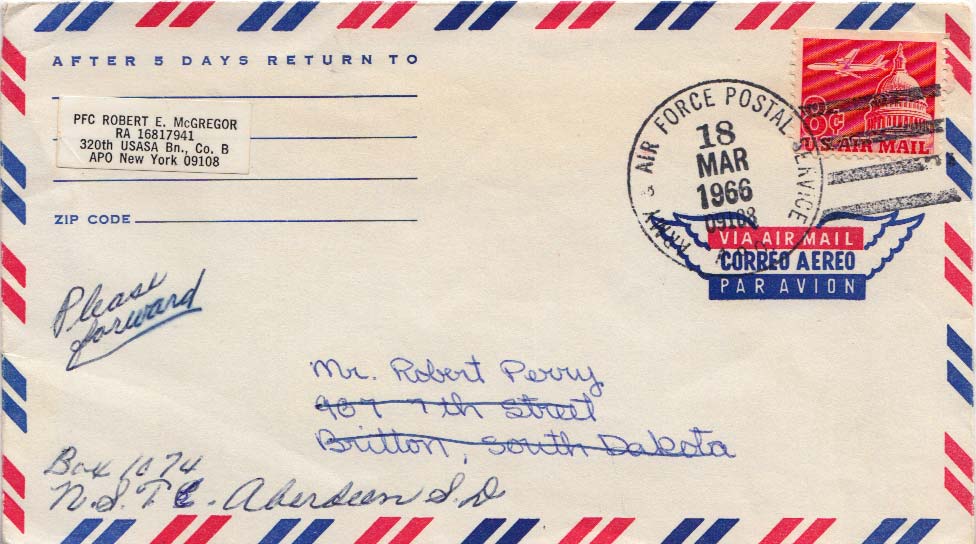 AFTER 5 DAYS RETURN TO
PFC ROBERT E. McGREGOR
RA 16817941
320th USASA Bn., Co. B
APO New York 09108
ZIP CODE
ARMY & AIR FORCE POSTAL SERVICE
18
MAR
1966
09108
A.P.O.
8¢
U.S. AIR MAIL
VIA AIR MAIL
CORREO AEREO
PAR AVION
Please
forward
Mr. Robert Perry
907 7th Street
Britton, South Dakota
Box 1074
N.S.T.C. Aberdeen S.D